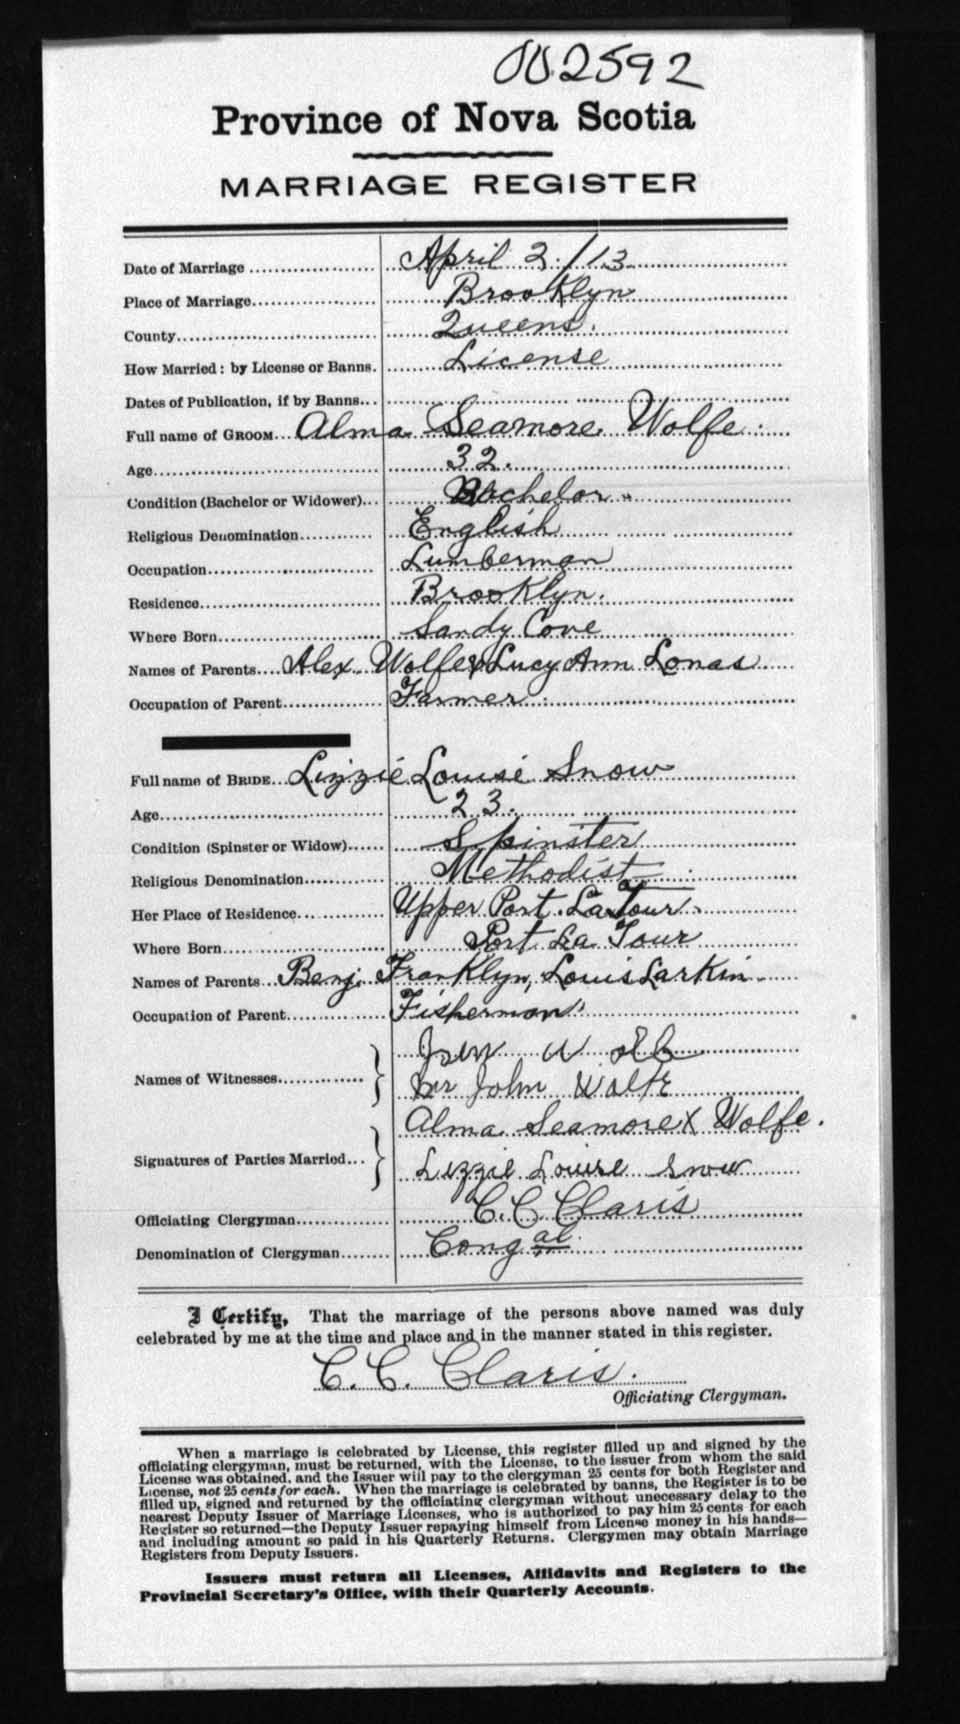 002592
Province of Nova Scotia
MARRIAGE REGISTER
Date of Marriage April 2./13
Place of Marriage Brooklyn
County Queens.
How Married: by License or Banns. License
Dates of Publication, if by Banns
Full name of GROOM Alma Seamore Wolfe.
Age 32.
Condition (Bachelor or Widower) Bachelor
Religious Denomination English
Occupation Lumberman
Residence Brooklyn.
Where Born Sandy Cove
Names of Parents Alex Wolfe & Lucy Ann Lonas
Occupation of Parent Farmer
Full name of BRIDE Lizzie Louise Snow
Age 23.
Condition (Spinster or Widow) Spinster
Religious Denomination Methodist
Her Place of Residence Upper Port La Tour
Where Born Port La Tour
Names of Parents Benj. Franklyn, Louis Larkin
Occupation of Parent Fisherman
Names of Witnesses
John
Alma Seamore X Wolfe.
Signatures of Parties Married Lizzie Louise Snow
Officiating Clergyman C. C. Claris
Denomination of Clergyman Congal.
I Certify, That the marriage of the persons above named was duly
celebrated by me at the time and place and in the manner stated in this register.
C. C. Claris.
Officiating Clergyman.
When a marriage is celebrated by License, this register filled up and signed by the
officiating clergyman, must be returned, with the License, to the issuer from whom the said
License was obtained, and the Issuer will pay to the clergyman 25 cents for both Register and
License, not 25 cents for each. When the marriage is celebrated by banns, the Register is to be
filled up, signed and returned by the officiating clergyman without unecessary delay to the
nearest Deputy Issuer of Marriage Licenses, who is authorized to pay him 25 cents for each
Register so returned—the Deputy Issuer repaying himself from License money in his hands—
and including amount so paid in his Quarterly Returns. Clergymen may obtain Marriage
Registers from Deputy Issuers.
Issuers must return all Licenses, Affidavits and Registers to the
Provincial Secretary's Office, with their Quarterly Accounts.